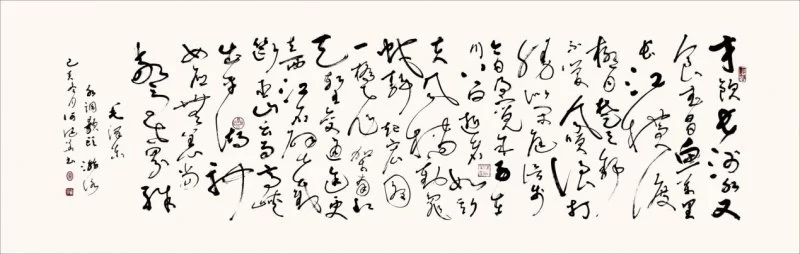 才饮长沙水又
食武昌鱼万里
长江横渡
极目楚天舒
不管风吹浪打
胜似闲庭信步
今日得宽余子在
川上曰逝者如斯
夫风樯动龟
蛇静起宏图
一桥飞架南北
天堑变通途更
立西江石壁截
断巫山云雨高峡
出平湖神
女应无恙当
惊世界殊
毛泽东
水调歌头 游泳
己亥冬月 书